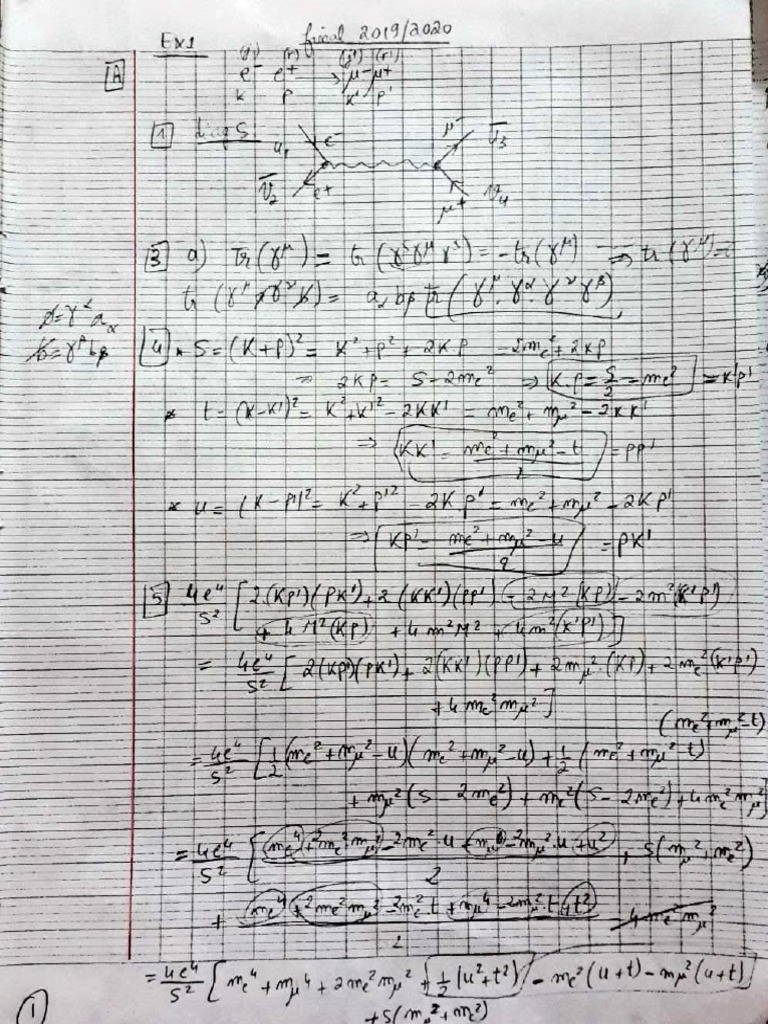 Ex1 final 2019/2020
(q) (r) (q') (r')
A e⁻ e⁺ → μ⁻ μ⁺
k p k' p'
1 diag S
u₁ e⁻ μ⁻ ū₃
v̄₂ e⁺ μ⁺ v₄
3 a) Tr(γ^μ) = tr(γ⁵γ^μ γ⁵) = - tr(γ^μ) ⇒ tr(γ^μ) =
tr(γ^μ a̸ γ^ν b̸) = a_α b_β tr(γ^μ . γ^α . γ^ν γ^β)
a̸ = γ^α a_α
b̸ = γ^β b_β
4 * S = (K+P)² = K² + P² + 2K.P = 2m_e² + 2KP
⇒ 2KP = S - 2m_e² ⇒ K.P = S/2 - m_e² = K'P'
* t = (K-K')² = K² + K'² - 2KK' = m_e² + m_μ² - 2KK'
⇒ KK' = (m_e² + m_μ² - t)/2 = PP'
* u = (K-P')² = K² + P'² - 2K.P' = m_e² + m_μ² - 2KP'
⇒ KP' = (m_e² + m_μ² - u)/2 = PK'
5 4e⁴/S² [2.(KP')(PK') + 2(KK')(PP') - 2M²(KP) - 2m²(K'P')
+ 4M²(KP) + 4m²M² + 4m²(K'P')]
= 4e⁴/S² [2(KP')(PK') + 2(KK')(PP') + 2m_μ².(KP) + 2m_e²(K'P')
+ 4m_e² m_μ²]
(m_e² + m_μ² - t)
= 4e⁴/S² [1/2 (m_e² + m_μ² - u)(m_e² + m_μ² - u) + 1/2 (m_e² + m_μ² - t)
+ m_μ²(S - 2m_e²) + m_e²(S - 2m_e²) + 4m_e² m_μ²]
= 4e⁴/S² [(m_e⁴ + 2m_e² m_μ² - 2m_e².u + m_μ⁴ - 2m_μ².u + u²)/2 , S(m_μ² + m_e²)
+ (m_e⁴ + 2m_e² m_μ² - 2m_e².t + m_μ⁴ - 2m_μ².t + t²)/2 - 4m_e² m_μ²
= 4e⁴/S² [m_e⁴ + m_μ⁴ + 2m_e² m_μ² + 1/2 (u² + t²) - m_e²(u+t) - m_μ²(u+t)
+ S(m_μ² + m_e²)
1